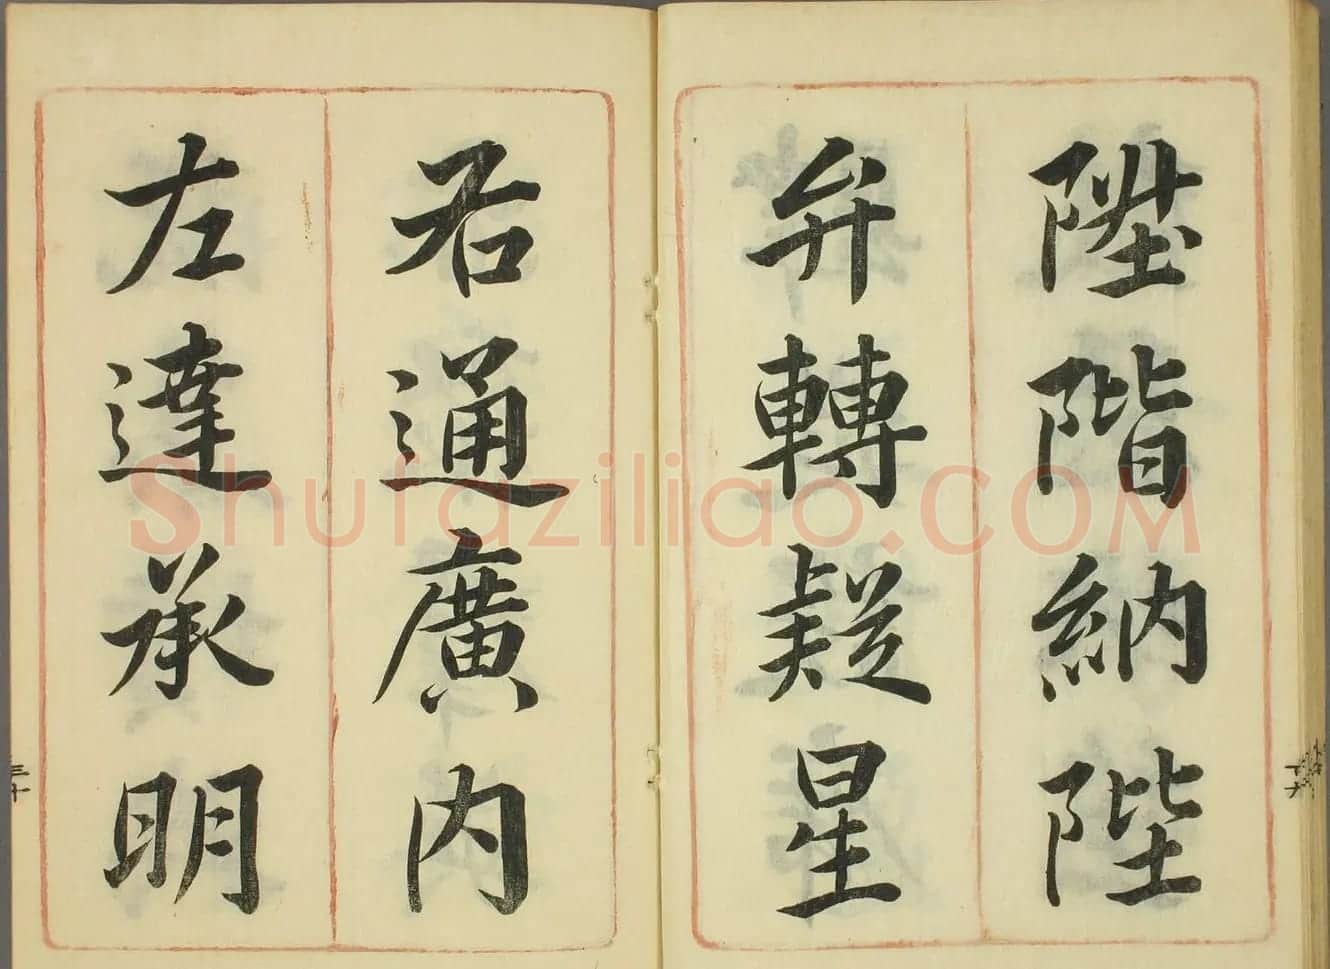 陞階納陛
弁轉疑星
右通廣内
左達承明
Shufaziliao.COM
三十